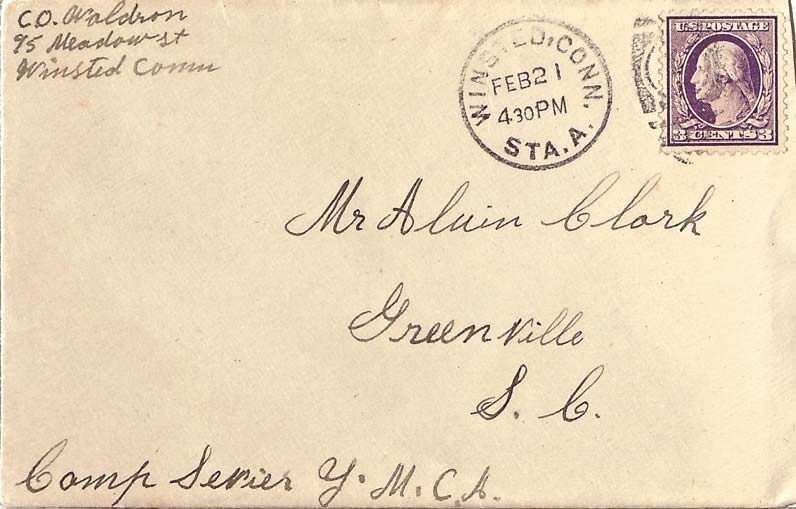 C.O. Waldron
95 Meadow st
Winsted Conn
WINSTED, CONN.
FEB 21
4 30 PM
STA. A.
U.S. POSTAGE
3 CENTS 3
Mr Alvin Clark
Greenville
S. C.
Camp Sevier Y. M. C. A.